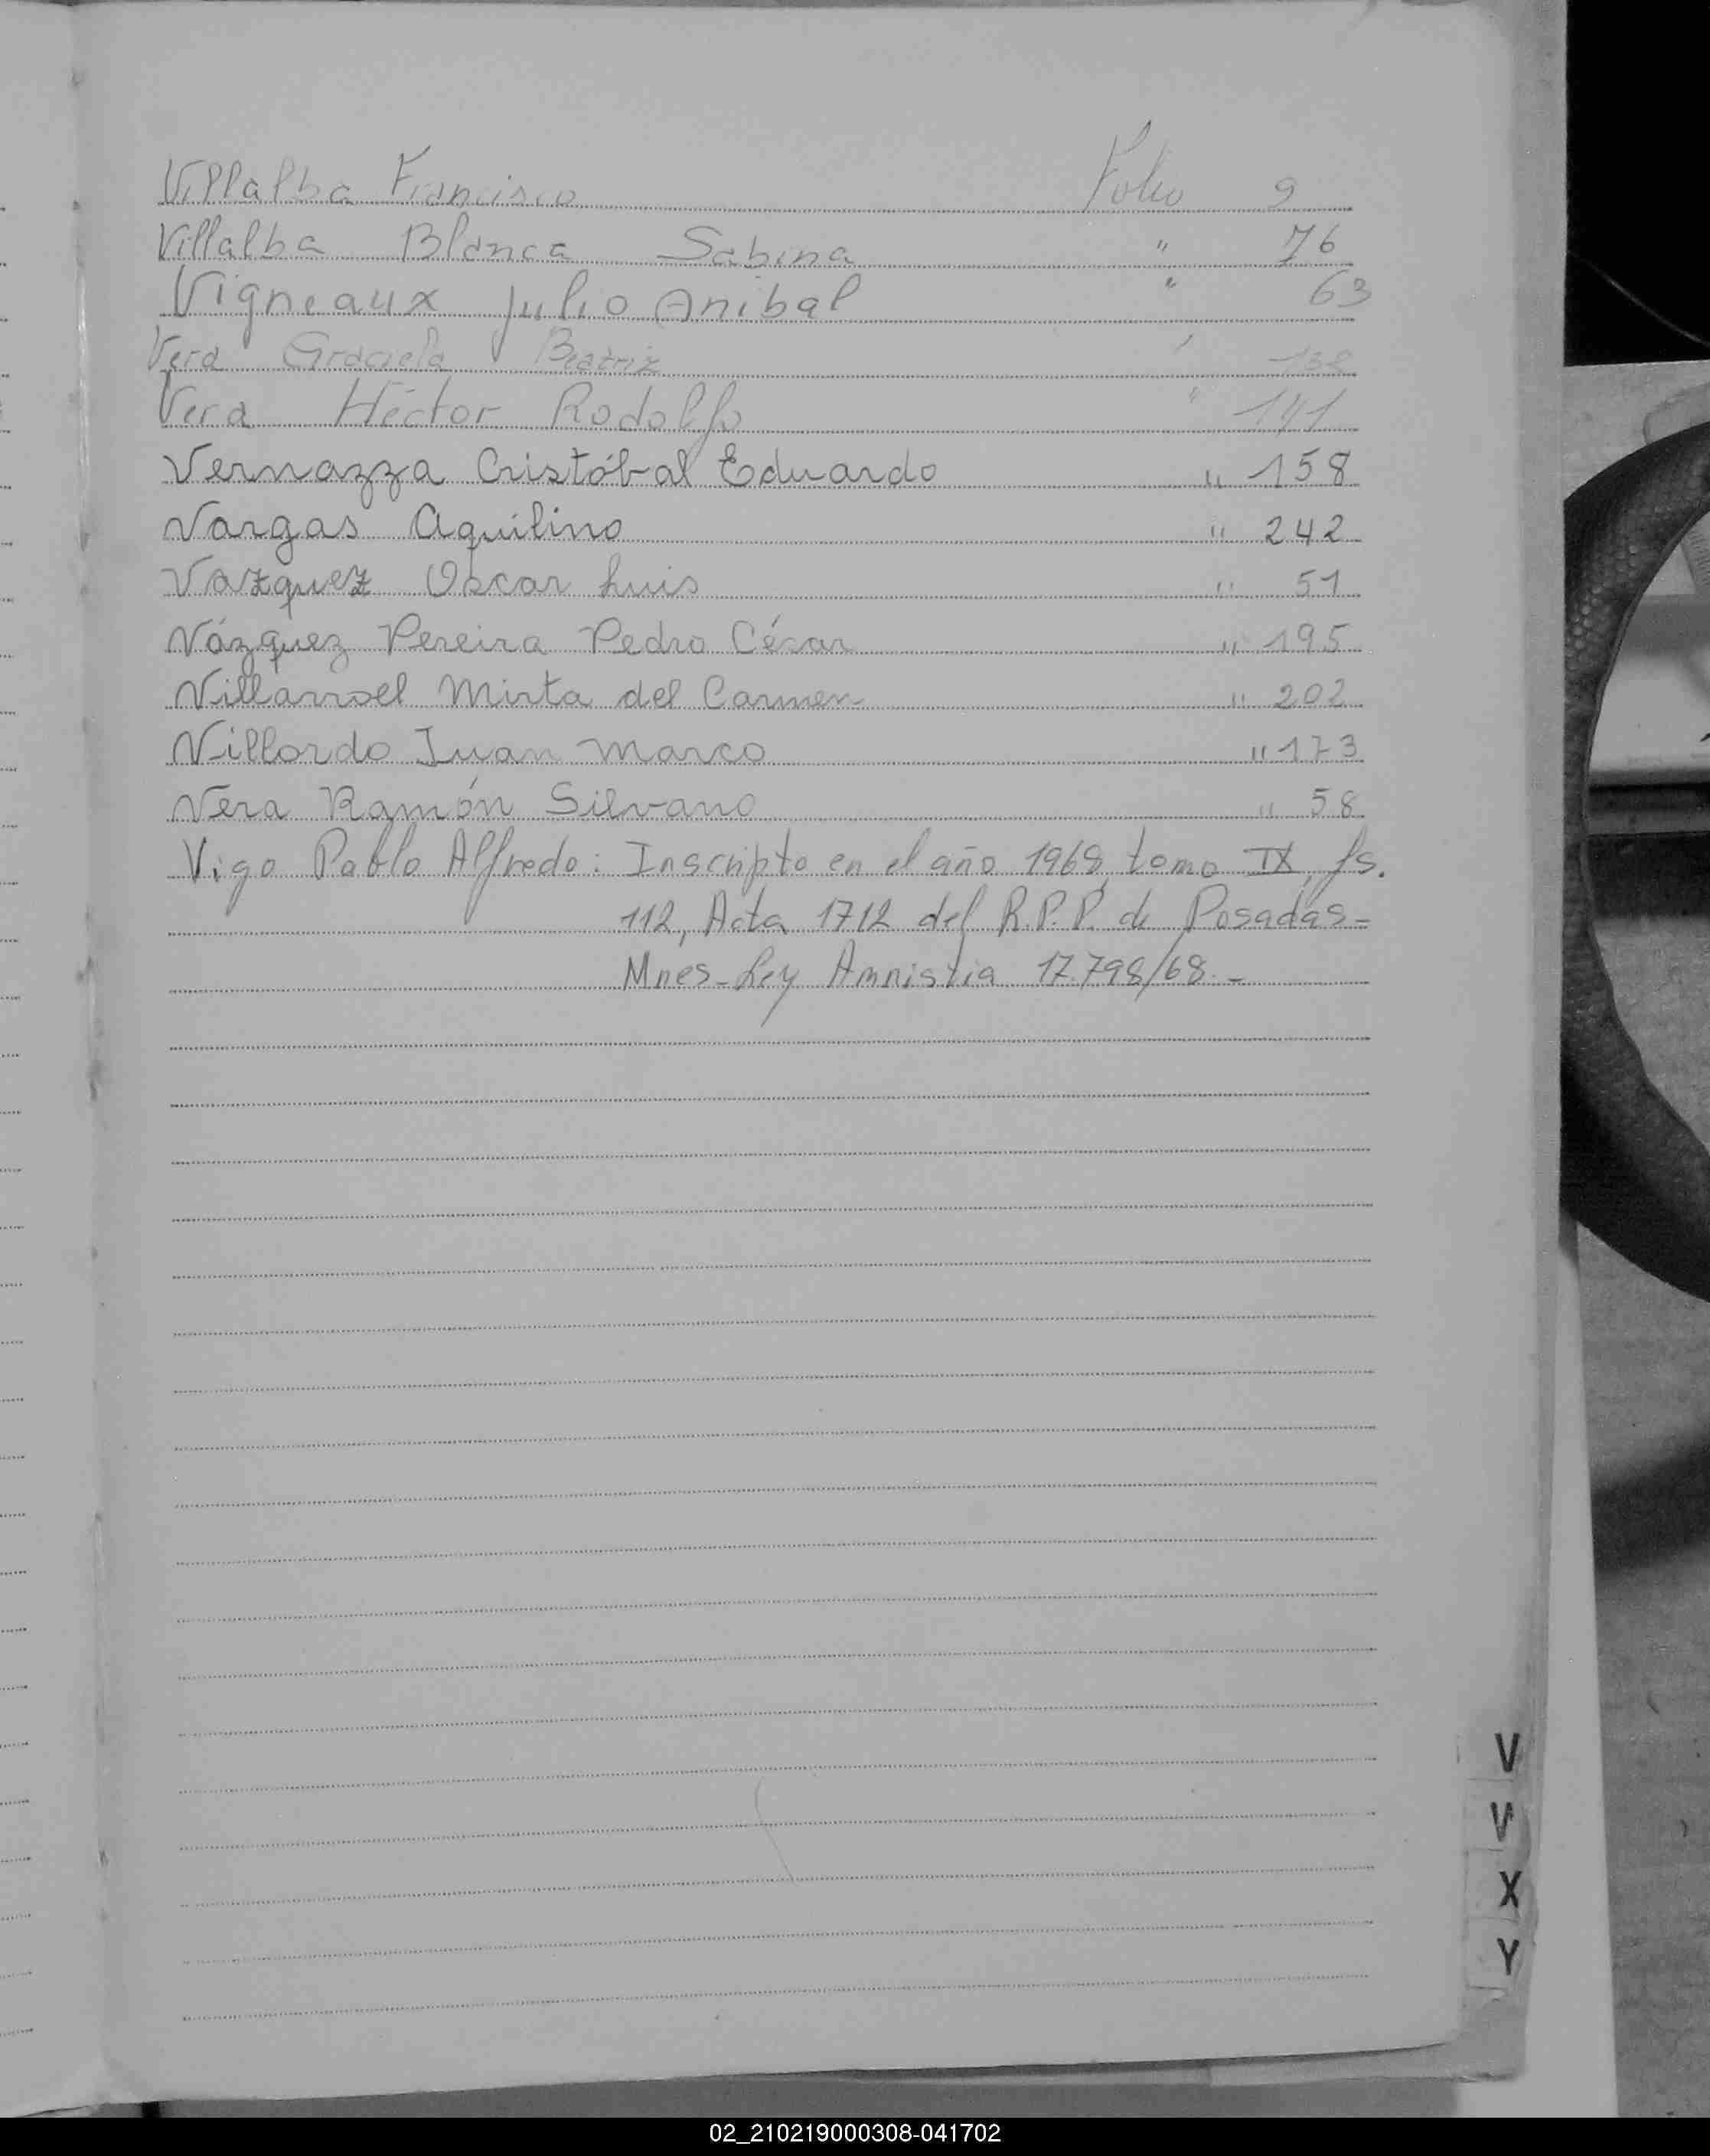 Villalba Francisco Folio 9
Villalba Blanca Sabina " 76
Vigneaux Julio Anibal " 63
Vera Graciela Beatriz " 138
Vera Héctor Rodolfo " 141
Vernazza Cristóbal Eduardo " 158
Vargas Aquilino " 242
Vazquez Oscar Luis " 51
Vázquez Pereira Pedro César " 195
Villarroel Mirta del Carmen " 202
Villordo Juan Marco " 173
Vera Ramón Silvano " 58
Vigo Pablo Alfredo: Inscripto en el año 1968, tomo IX, fs.
112, Acta 1712 del R.P.P. de Posadas-
Mnes-Ley Amnistia 17.798/68.-
V
W
X
Y
02_210219000308-041702